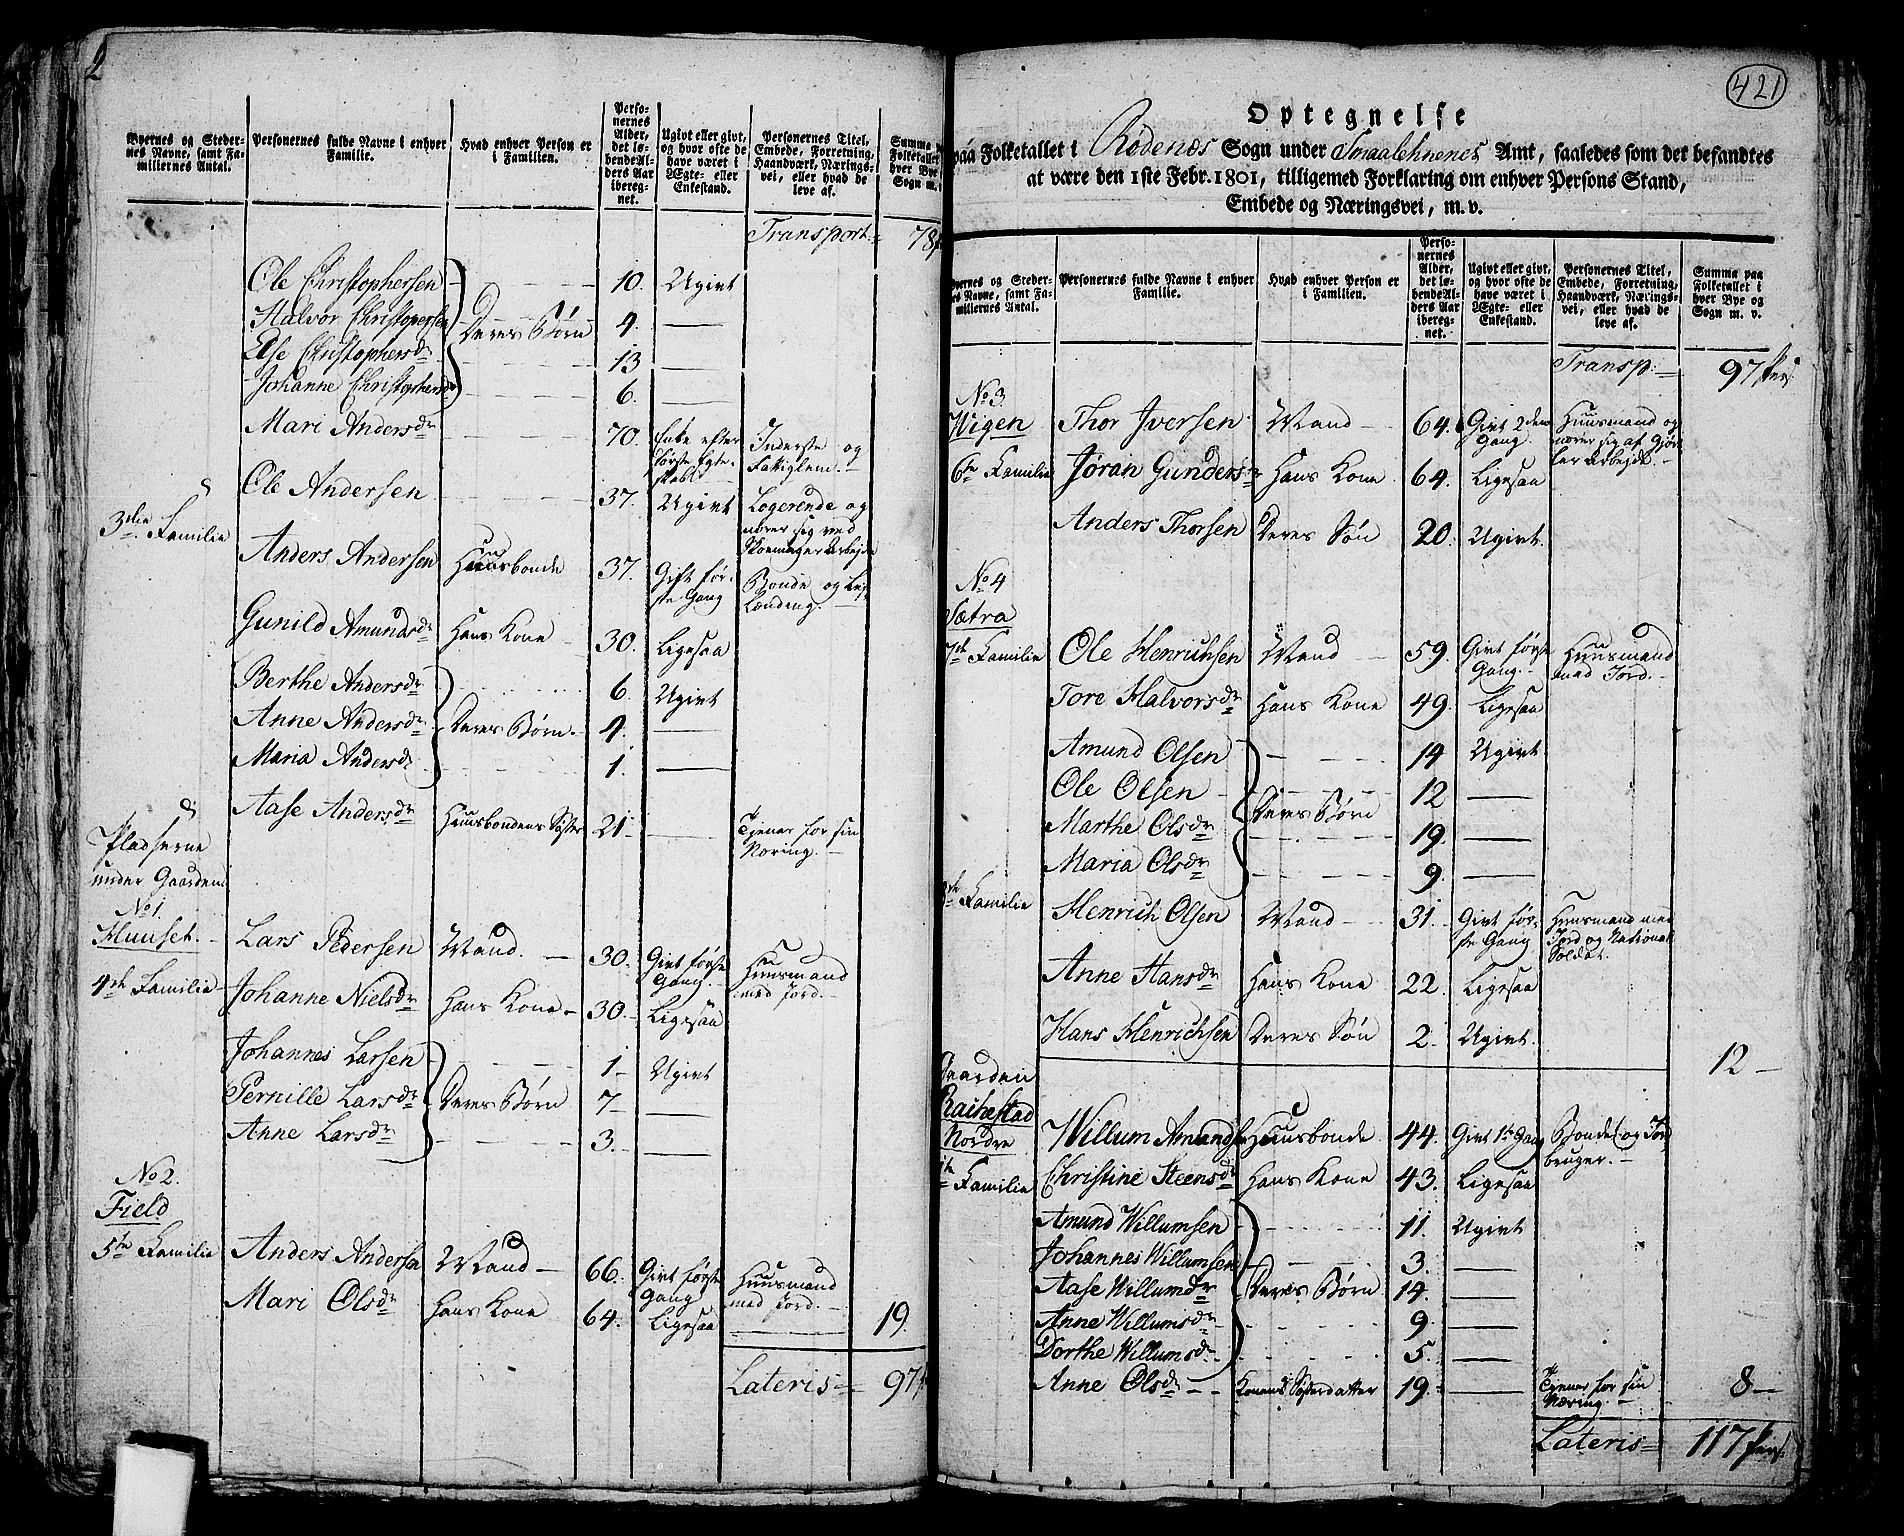 2
Byernes og Stedernes Navne, samt Familiernes Antal.
Personernes fulde Navne i enhver Familie.
Hvad enhver Person er i Familien.
Personernes Alder, det løbende Alders Aar iberegnet.
Ugivt eller givt, og hvor ofte de have været i Ægte- eller Enkestand.
Personernes Titel, Embede, Forretning, Haandværk, Næringsvei, eller hvad de leve af.
Summa Folketallet hver Bye Sogn m.
Transport = 78
Ole Christophersen 10. Ugivt
Halvor Christopersen Deres Børn 4. —
Else Christophersdr 13 —
Johanne Christophersdr 6. —
Mari Andersdr 70. Enke efter Inderste og
første Egte- Fattiglem. –
skab
Ole Andersen 37. Ugivt Logerende og
nærer sig ved
Skoemager Arbejde
3die Familie
Anders Andersen Huusbonde 37. Gift før- Bonde og
ste Gang
Gunild Amundsdr Hans Kone – 30. Ligesaa
Berthe Andersdr 6. Ugivt
Anne Andersdr Deres Børn – 4. —
Maria Andersdr 1. —
Aase Andersdr Huusbondens Søster 21 — Tjener for sin
Næring. –
Pladserne
under Gaarden
No 1.
Huuset. –
Lars Pedersen Mand. – 30. Givt første Huusmand
Gang. – med Jord. –
4de Familie – Johanne Nielsdr Hans Kone – 30. – Ligesaa
Johannes Larsen 1 – Ugivt
Pernille Larsdr Deres Børn 7 – —
Anne Larsdr 3. —
No 2.
Field
5te Familie Anders Andersen Mand – 66. Givt første Huusmand
Gang med Jord. –
Mari Olsdr Hans Kone 64. Ligesaa 19.
Lateris = 97
421
Optegnelse
paa Folketallet i Rødenæs Sogn under Smaalehnenes Amt, saaledes som det befandtes
at være den 1ste Febr. 1801, tilligemed Forklaring om enhver Persons Stand,
Embede og Næringsvei, m. v.
Byernes og Stedernes Navne, samt Familiernes Antal.
Personernes fulde Navne i enhver Familie.
Hvad enhver Person er i Familien.
Personernes Alder, det løbende Alders Aar iberegnet.
Ugivt eller givt, og hvor ofte de have været i Ægte- eller Enkestand.
Personernes Titel, Embede, Forretning, Haandværk, Næringsvei, eller hvad de leve af.
Summa paa Folketallet i hver Bye og Sogn m. v.
Transp: = 97 Pers:
No 3.
Wigen Thor Iversen Mand – 64. Givt 2den Huusmand og
Gang nærer sig af
Arbejde. –
6te Familie Jøran Gundersdr Hans Kone 64. Ligesaa
Anders Thorsen Deres Søn 20. Ugivt.
No 4
Sætra
7de Familie Ole Henrichsen Mand – 59. Givt første Huusmand
Gang. – med Jord. –
Tore Halvorsdr Hans Kone 49. Ligesaa
Amund Olsen 14 Ugivt
Ole Olsen 12 —
Marthe Olsdr Deres Børn 19. —
Maria Olsdr 9. —
8de Familie
Henrich Olsen Mand – 31. Givt før- Huusmand med
ste Gang Jord og National
Soldat.
Anne Hansdr Hans Kone 22. Ligesaa
Hans Henrichsen Deres Søn 2. Ugivt.
12 –
Gaarden
Rakkestad
Nordre Willum Amundsen Huusbonde 44. Givt 1ste Gang Bonde og Jord
bruger. –
Familie Christine Steensdr Hans Kone 43. Ligesaa
Amund Willumsen 11. Ugivt
Johannes Willumsen 3. —
Aase Willumsdr Deres Børn 14. —
Anne Willumsdr 9. —
Dorthe Willumsdr 5. —
Anne Olsdr – – Konens Søsterdatter 19. — Tjener for sin 8 –
Næring. –
Lateris = 117 Pers: